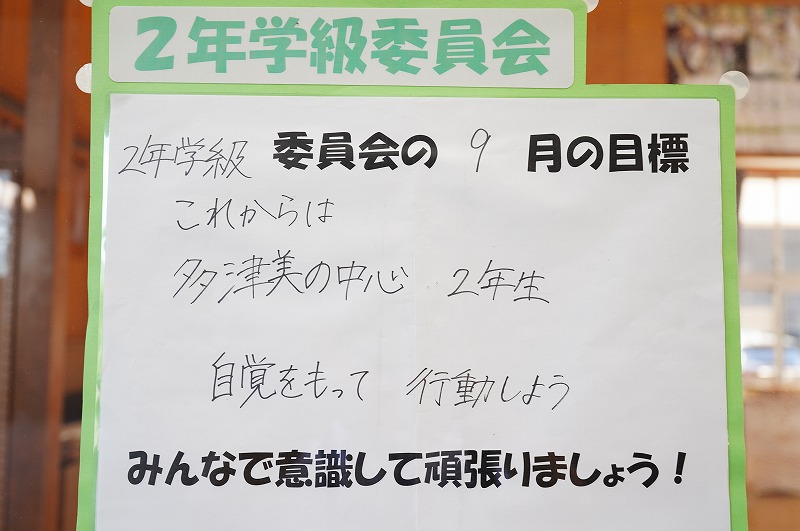 2年学級委員会
2年学級 委員会の 9 月の目標
これからは
多津美の中心 2年生
自覚をもって 行動しよう
みんなで意識して頑張りましょう!